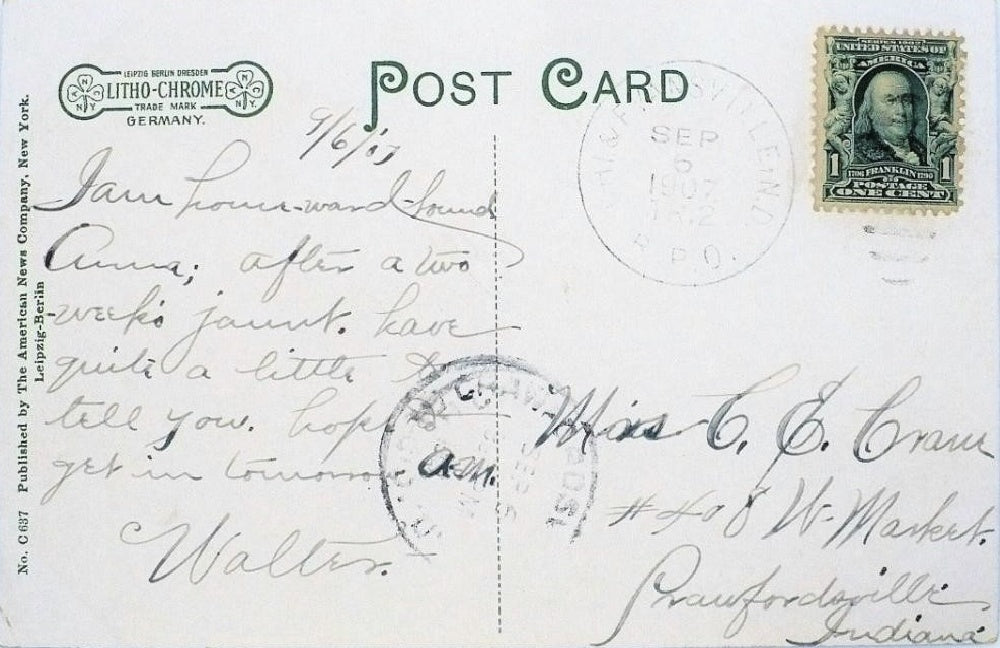 LEIPZIG BERLIN DRESDEN
LITHO-CHROME
TRADE MARK
GERMANY.
POST CARD
No. C 637 Published by The American News Company, New York.
Leipzig-Berlin
9/6/07
I am home-ward-bound
Anna; after a two
weeks jaunt. have
quite a little to
tell you. hope
get in tomorrow
a.m.
Walter.
SEP
6
1907
TR.2
R.P.O.
SERIES 1902
UNITED STATES OF
AMERICA
1706 FRANKLIN 1790
POSTAGE
1 ONE CENT 1
CRAWFORDSV
Miss C. E. Crane
#408 W. Market.
Crawfordsville
Indiana